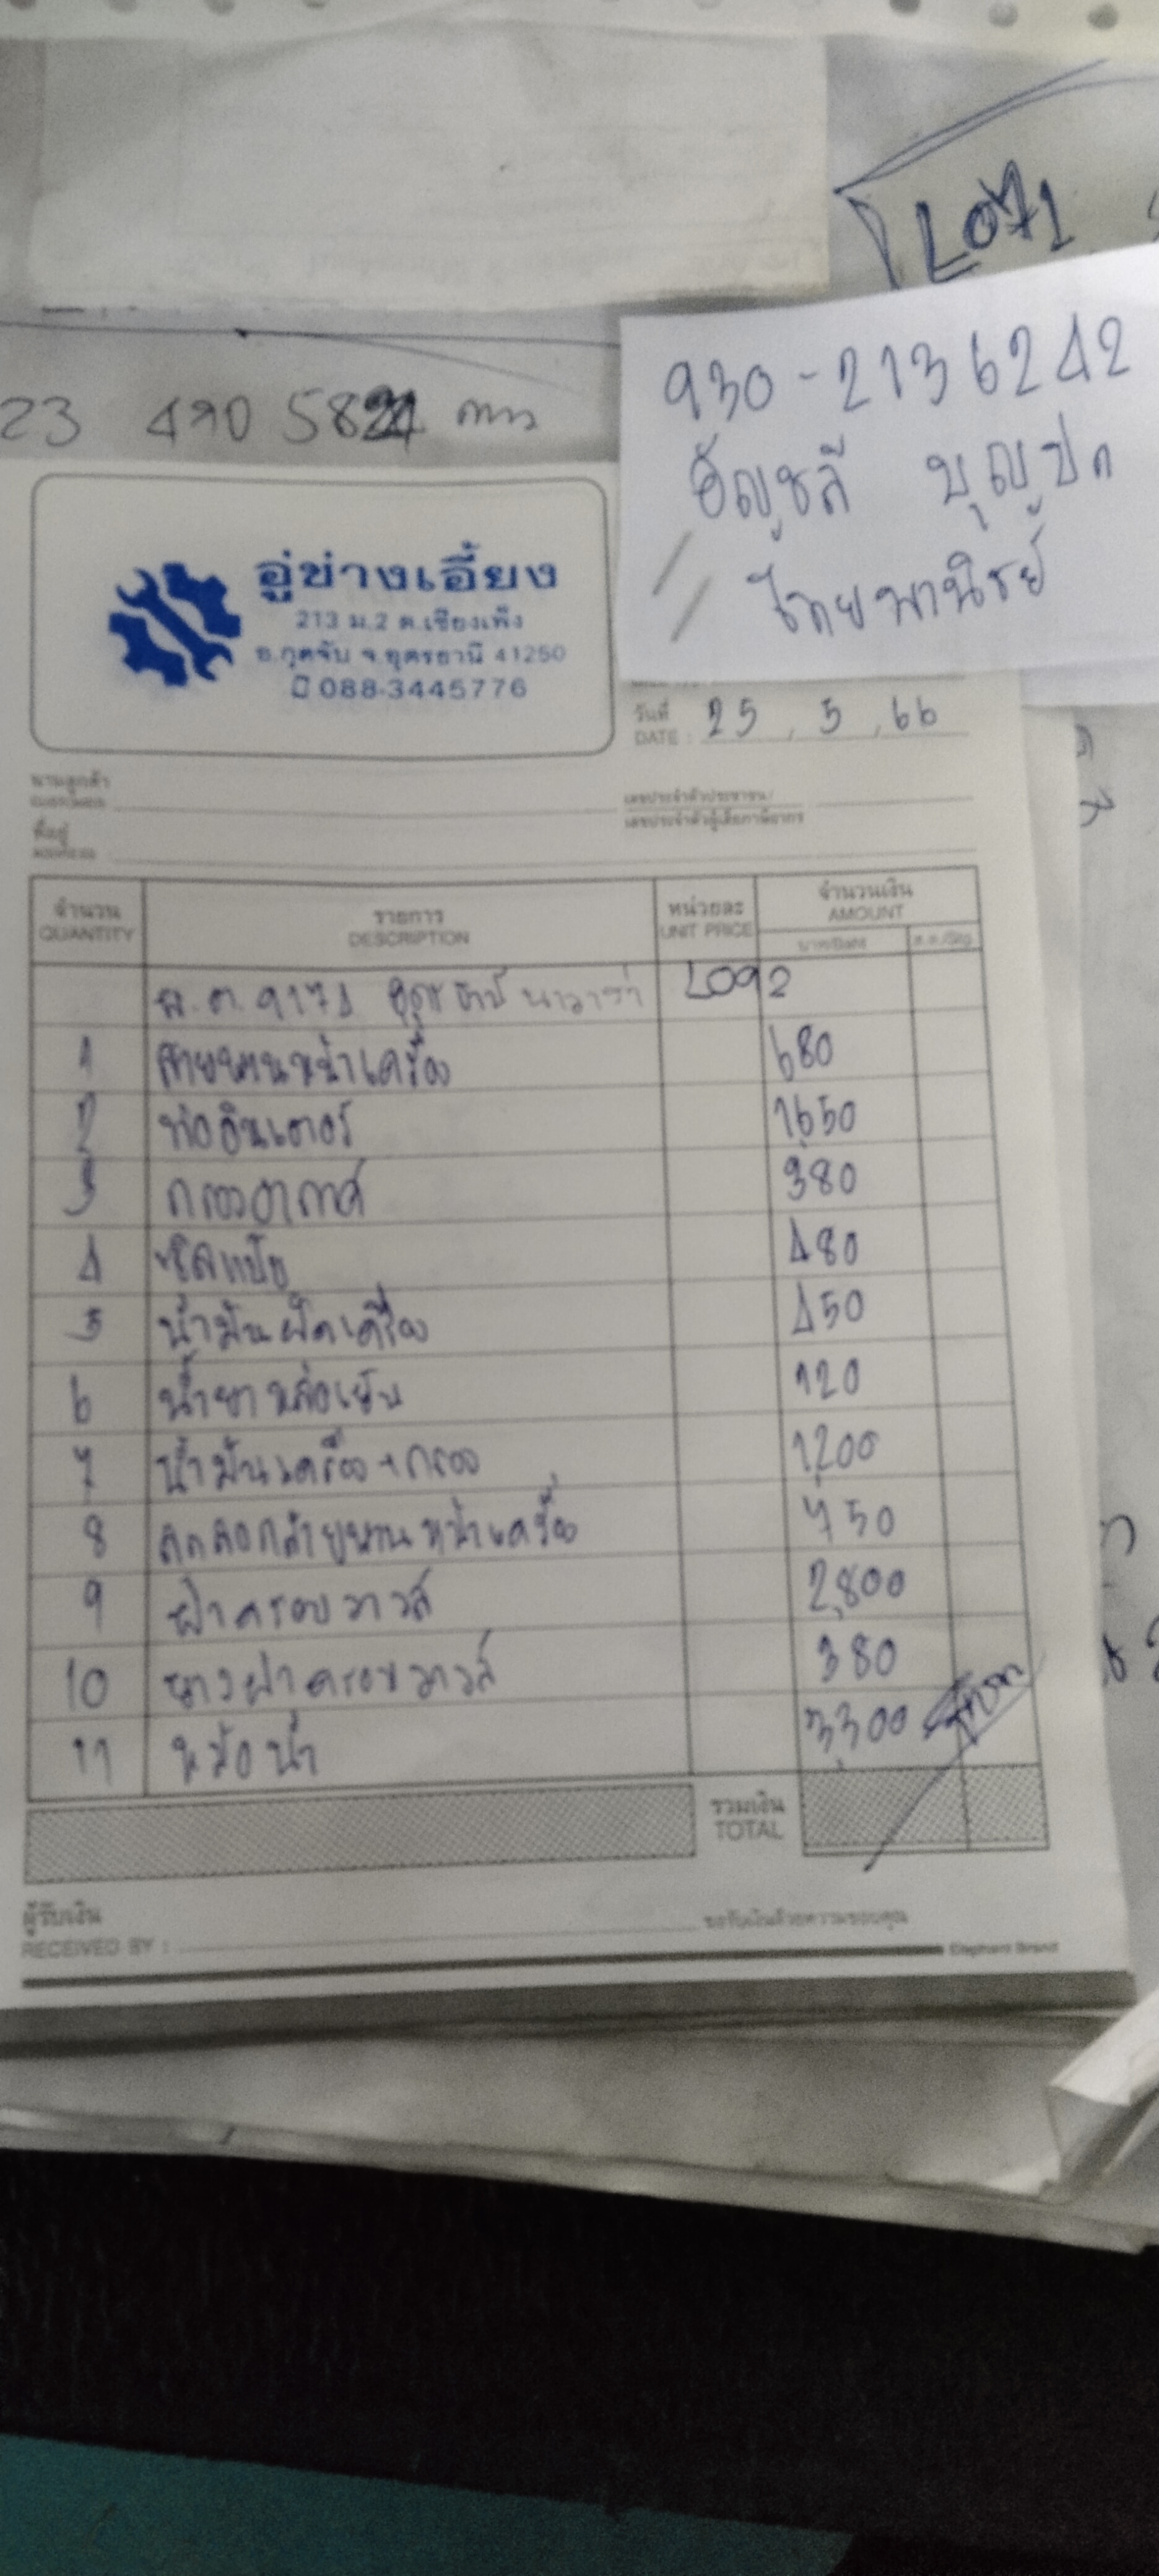 L071
930-2136242
อัญชลี บุญปก
ไทยพานิชย์
23 490 582
อู่ช่างเอี้ยง
213 ม.2 ต.เชียงเพ็ง
อ.กุดจับ จ.อุดรธานี 41250
088-3445776
วันที่
DATE : 25 , 5 , 66
นามลูกค้า
CUSTOMER
เลขประจำตัวประชาชน/
เลขประจำตัวผู้เสียภาษีอากร
ที่อยู่
ADDRESS
จำนวน รายการ หน่วยละ จำนวนเงิน
QUANTITY DESCRIPTION UNIT PRICE AMOUNT
บาท/Baht ส.ต./Stg.
9171 นาวาร่า L092
1 สายพานหน้าเครื่อง 680
2 ท่ออินเตอร์ 1650
3 กรองอากาศ 380
4 480
5 น้ำมันเครื่อง 450
6 น้ำยาหล่อเย็น 120
7 น้ำมันเครื่อง + กรอง 1,200
8 สายพานหน้าเครื่อง 750
9 ฝาครอบวาวส์ 2,800
10 ยางฝาครอบวาวส์ 380
11 หม้อน้ำ 3,300
รวมเงิน
TOTAL
ผู้รับเงิน
RECEIVED BY : ขอรับเงินด้วยความขอบคุณ
Elephant Brand